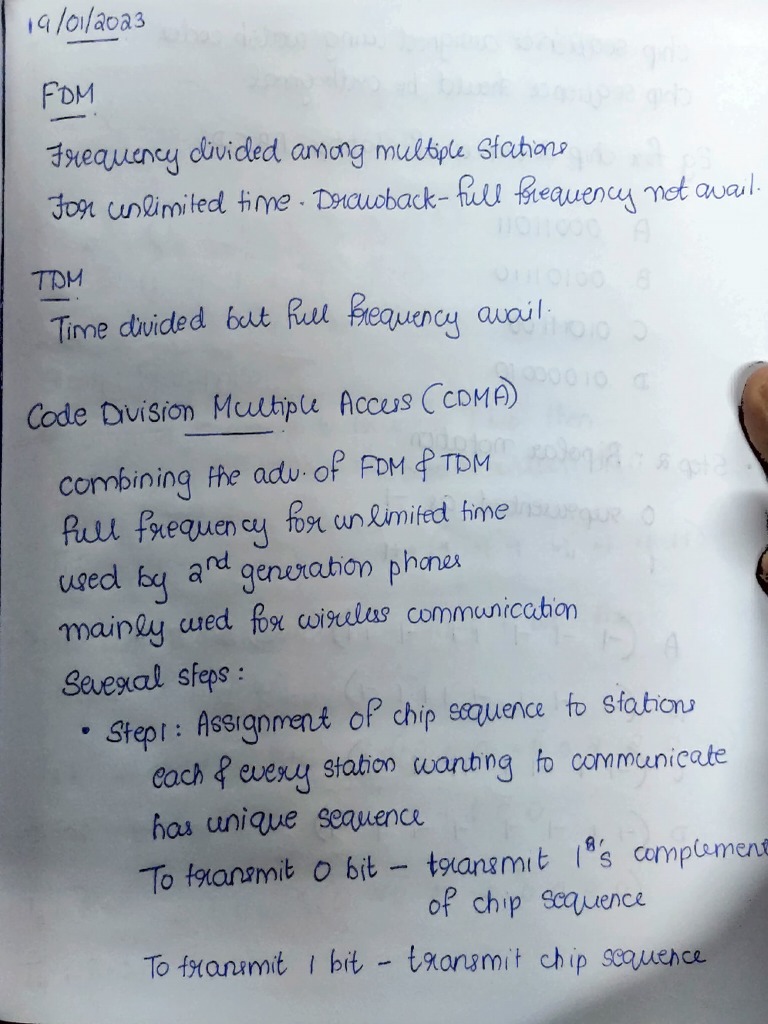 19/01/2023
FDM
Frequency divided among multiple stations
For unlimited time. Drawback- full frequency not avail.
TDM
Time divided but full frequency avail.
Code Division Multiple Access (CDMA)
combining the adv. of FDM & TDM
full frequency for unlimited time
used by 2nd generation phones
mainly used for wireless communication
Several steps:
• Step1: Assignment of chip sequence to stations
each & every station wanting to communicate
has unique sequence
To transmit 0 bit - transmit 1's complement
of chip sequence
To transmit 1 bit - transmit chip sequence